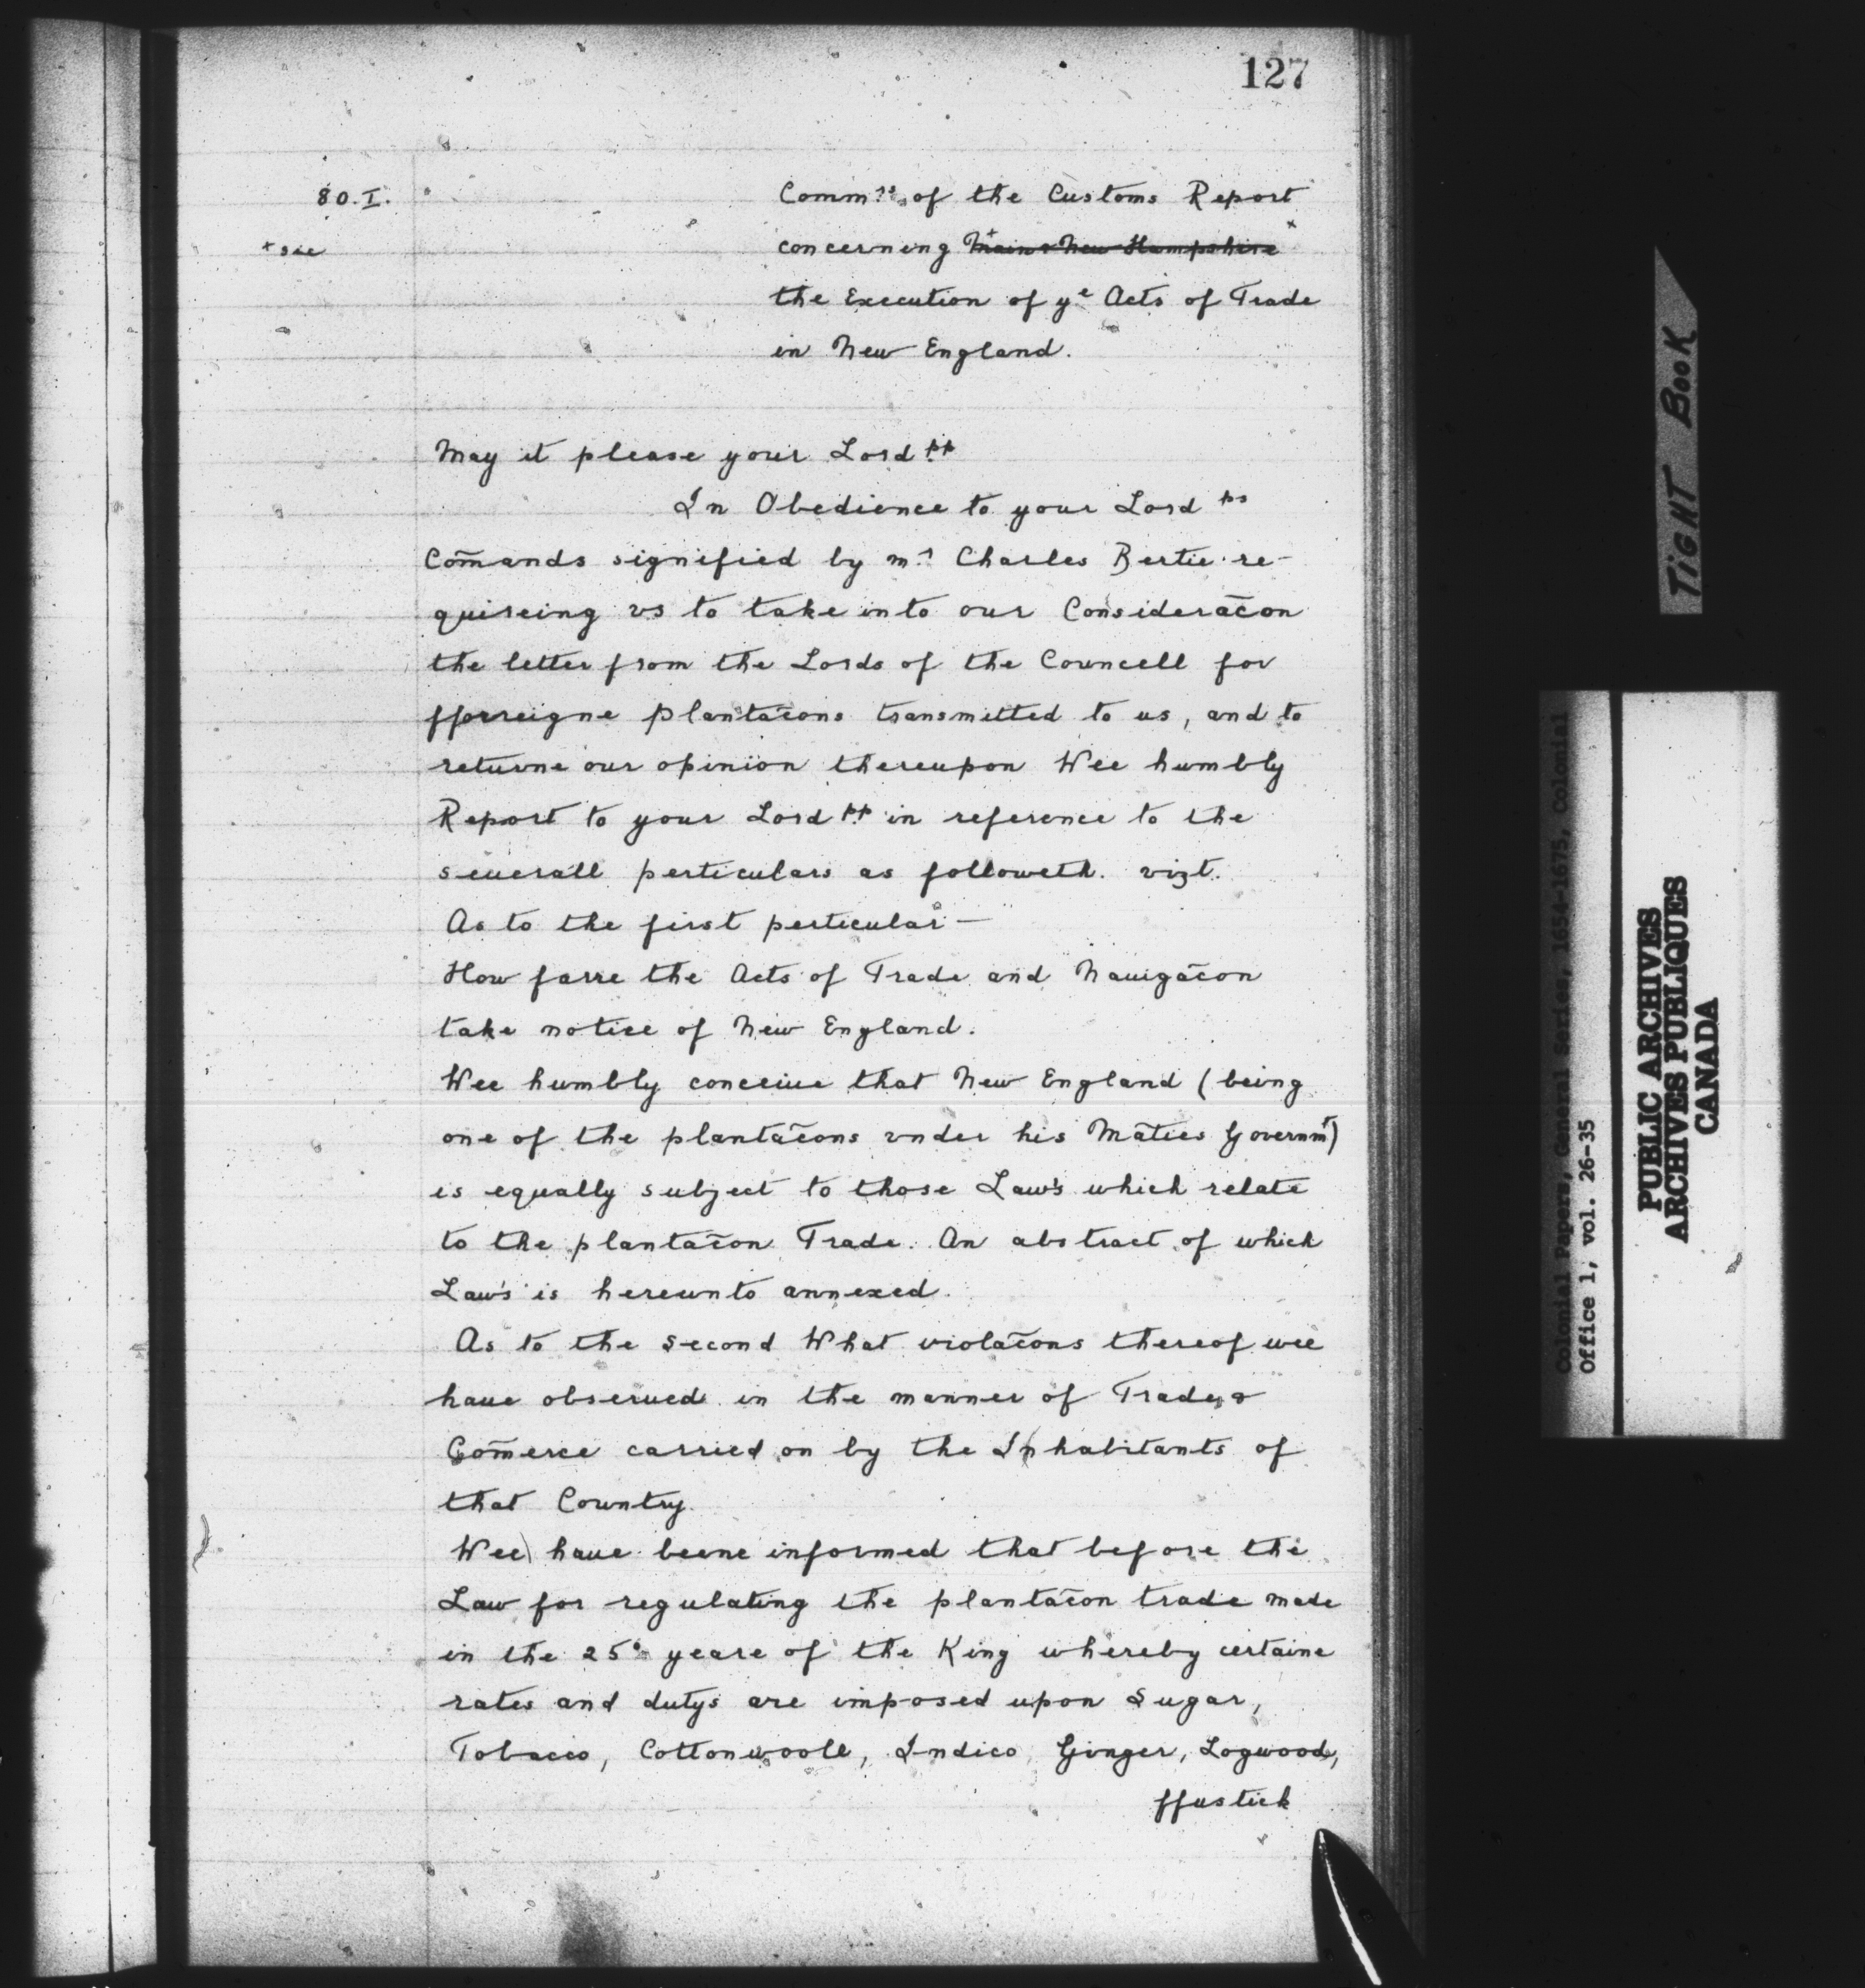 127
80. I.
Comm.rs of the Customs Report
+ sic
concerning + Main & New Hampshire x
the Execution of ye Acts of Trade
in New England.
May it please your Lordpps
In Obedience to your Lord ps
Com̄ands signified by mr Charles Bertie re-
quireing vs to take into our Considerac̄on
the letter from the Lords of the Councell for
fforreigne plantac̄ons transmitted to us, and to
returne our opinion thereupon Wee humbly
Report to your Lordpps in reference to the
seuerall perticulars as followeth. vizt.
As to the first perticular —
How farre the Acts of Trade and Nauigac̄on
take notice of New England.
Wee humbly conceiue that New England (being
one of the plantac̄ons vnder his Mat̄ies Governmt)
is equally subject to those Law's which relate
to the plantac̄on Trade. An abstract of which
Law's is hereunto annexed.
As to the second What violac̄ons thereof wee
haue observed in the manner of Trade &
Com̄erce carried on by the Inhabitants of
that Country.
Wee haue beene informed that before the
Law for regulating the plantac̄on trade made
in the 25o yeare of the King whereby certaine
rates and dutys are imposed upon Sugar,
Tobacco, Cottonwooll, Indico Ginger, Logwood,
ffustick
TIGHT BOOK
Colonial Papers, General Series, 1654-1675, Colonial
Office 1, vol. 26-35
PUBLIC ARCHIVES
ARCHIVES PUBLIQUES
CANADA